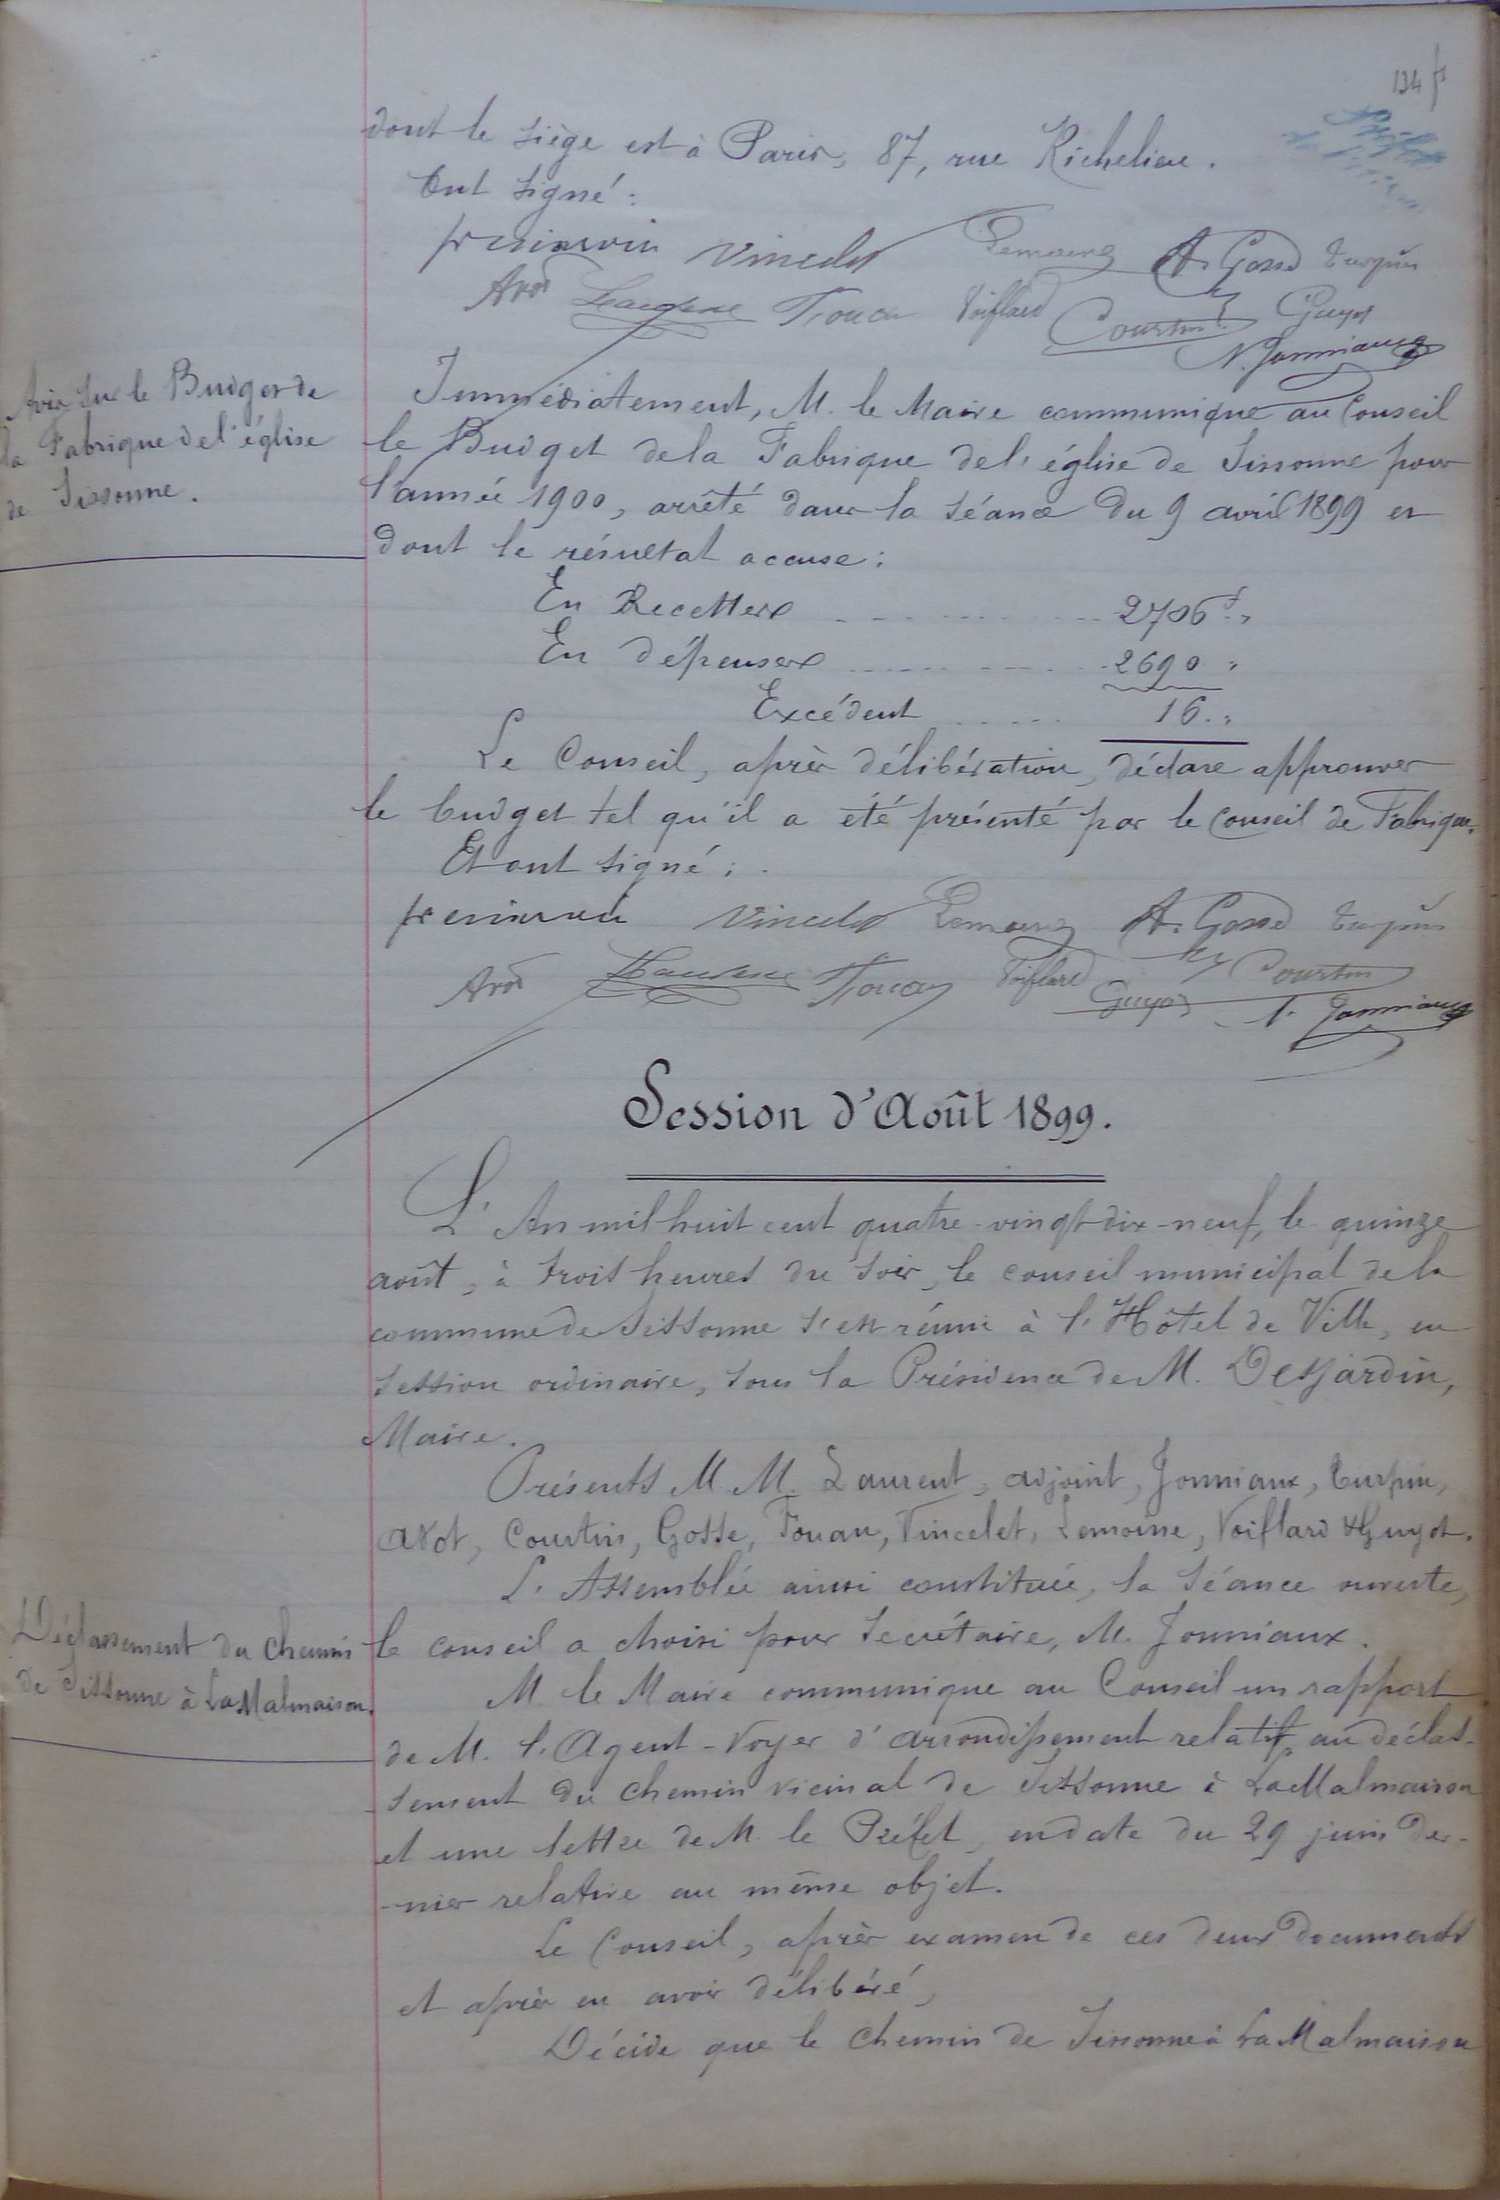 134
dont le siège est à Paris, 87, rue Richelieu.
Ont signé:
Vincelet Lemoine A. Gosse Turpin
Avot Laurent Fouan Voiflard Courtin Guyot
N. Jonniaux
Avis sur le Budget de
la Fabrique de l'église
de Sissonne.
Immédiatement, M. le Maire communique au Conseil
le Budget de la Fabrique de l'église de Sissonne pour
l'année 1900, arrêté dans la séance du 9 avril 1899 et
dont le résultat accuse:
En Recettes 2706 f. "
En dépenses 2690 "
Excédent 16. "
Le Conseil, après délibération, déclare approuver
le budget tel qu'il a été présenté par le Conseil de Fabrique.
Et ont signé:
Vincelet Lemoine A. Gosse Turpin
Avot Laurent Fouan Voiflard Guyot Courtin
N. Jonniaux
Session d'Août 1899.
L'An mil huit cent quatre-vingt-dix-neuf, le quinze
août, à trois heures du soir, le conseil municipal de la
commune de Sissonne s'est réuni à l'Hôtel de Ville, en
session ordinaire, sous la Présidence de M. Desjardin,
Maire.
Présents M M. Laurent, adjoint, Jonniaux, Turpin,
Avot, Courtin, Gosse, Fouan, Vincelet, Lemoine, Voiflard & Guyot.
L'Assemblée ainsi constituée, la séance ouverte,
le conseil a choisi pour secrétaire, M. Jonniaux.
Déclassement du chemin
de Sissonne à La Malmaison.
M. le Maire communique au Conseil un rapport
de M. l'Agent-Voyer d'arrondissement relatif au déclas-
sement du chemin vicinal de Sissonne à La Malmaison
et une lettre de M. le Préfet, en date du 29 juin der-
-nier relative au même objet.
Le Conseil, après examen de ces deux documents
et après en avoir délibéré,
Décide que le chemin de Sissonne à La Malmaison